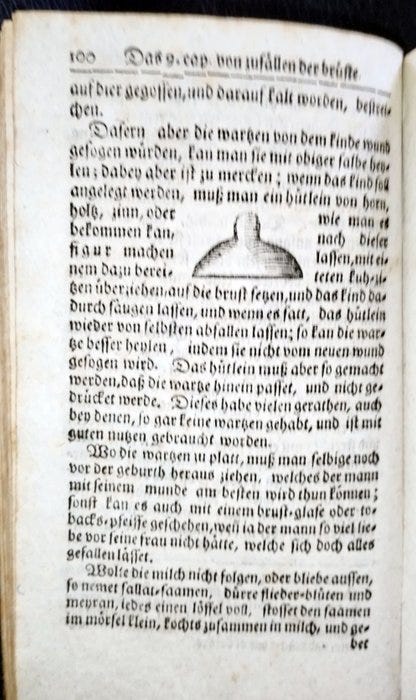 100 Das 9. cap. von zufällen der brüste
auf bier gegossen, und darauf kalt worden, bestrei-
chen.
Dafern aber die wartzen von dem kinde wund
gesogen würden, kan man sie mit obiger salbe hey-
len; dabey aber ist zu mercken; wenn das kind soll
angelegt werden, muß man ein hütlein von horn,
holtz, zinn, oder wie man es
bekommen kan, nach dieser
figur machen lassen, mit ei-
nem dazu berei- teten kuh-zi-
tzen überziehen, auf die brust setzen, und das kind da-
durch saugen lassen, und wenn es satt, das hütlein
wieder von selbsten abfallen lassen; so kan die war-
tze besser heylen, indem sie nicht vom neuen wund
gesogen wird. Das hütlein muß aber so gemacht
werden, daß die wartze hinein passet, und nicht ge-
drücket werde. Dieses habe vielen gerathen, auch
bey denen, so gar keine wartzen gehabt, und ist mit
guten nutzen gebraucht worden.
Wo die wartzen zu platt, muß man selbige noch
vor der geburth heraus ziehen, welches der mann
mit seinem munde am besten wird thun können;
sonst kan es auch mit einem brust-glase oder to-
backs-pfeiffe geschehen, weil ja der mann so viel lie-
be vor seine frau nicht hätte, welche sich doch alles
gefallen lässet.
Wolte die milch nicht folgen, oder bliebe aussen,
so nemet sallat-saamen, dürre flieder-blüten und
meyran, iedes einen löffel voll, stosset den saamen
im mörsel klein, kochts zusammen in milch, und ge-
bet